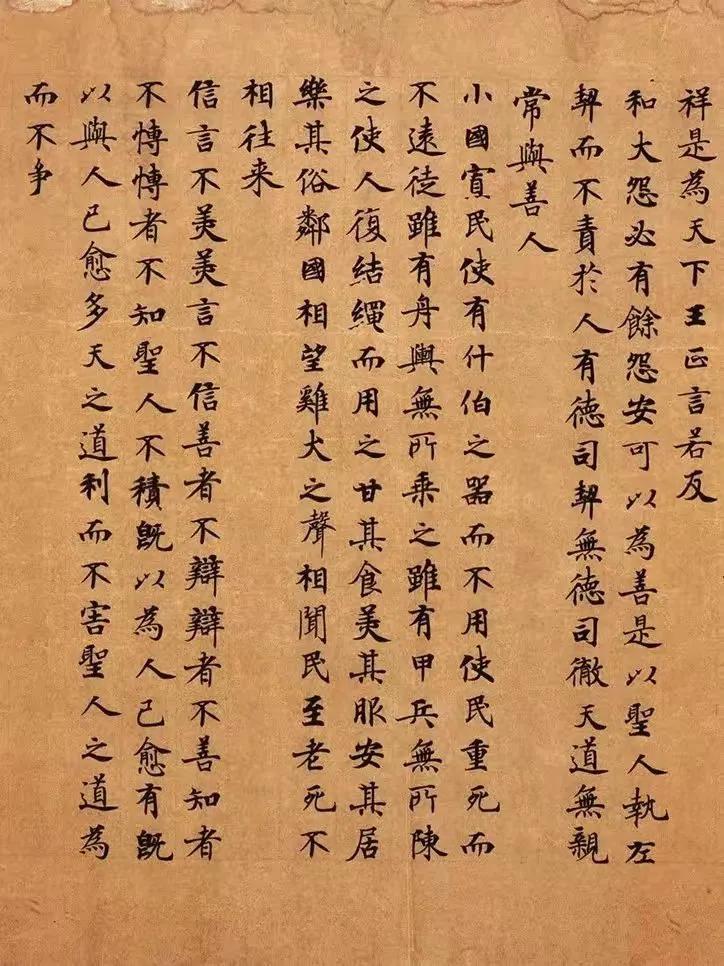 祥是為天下王正言若反
和大怨必有餘怨安可以為善是以聖人執左
契而不責於人有德司契無德司徹天道無親
常與善人
小國寡民使有什伯之器而不用使民重死而
不遠徙雖有舟輿無所乗之雖有甲兵無所陳
之使人復結繩而用之甘其食美其服安其居
樂其俗鄰國相望雞犬之聲相聞民至老死不
相往来
信言不美美言不信善者不辯辯者不善知者
不博博者不知聖人不積既以為人己愈有既
以與人己愈多天之道利而不害聖人之道為
而不争